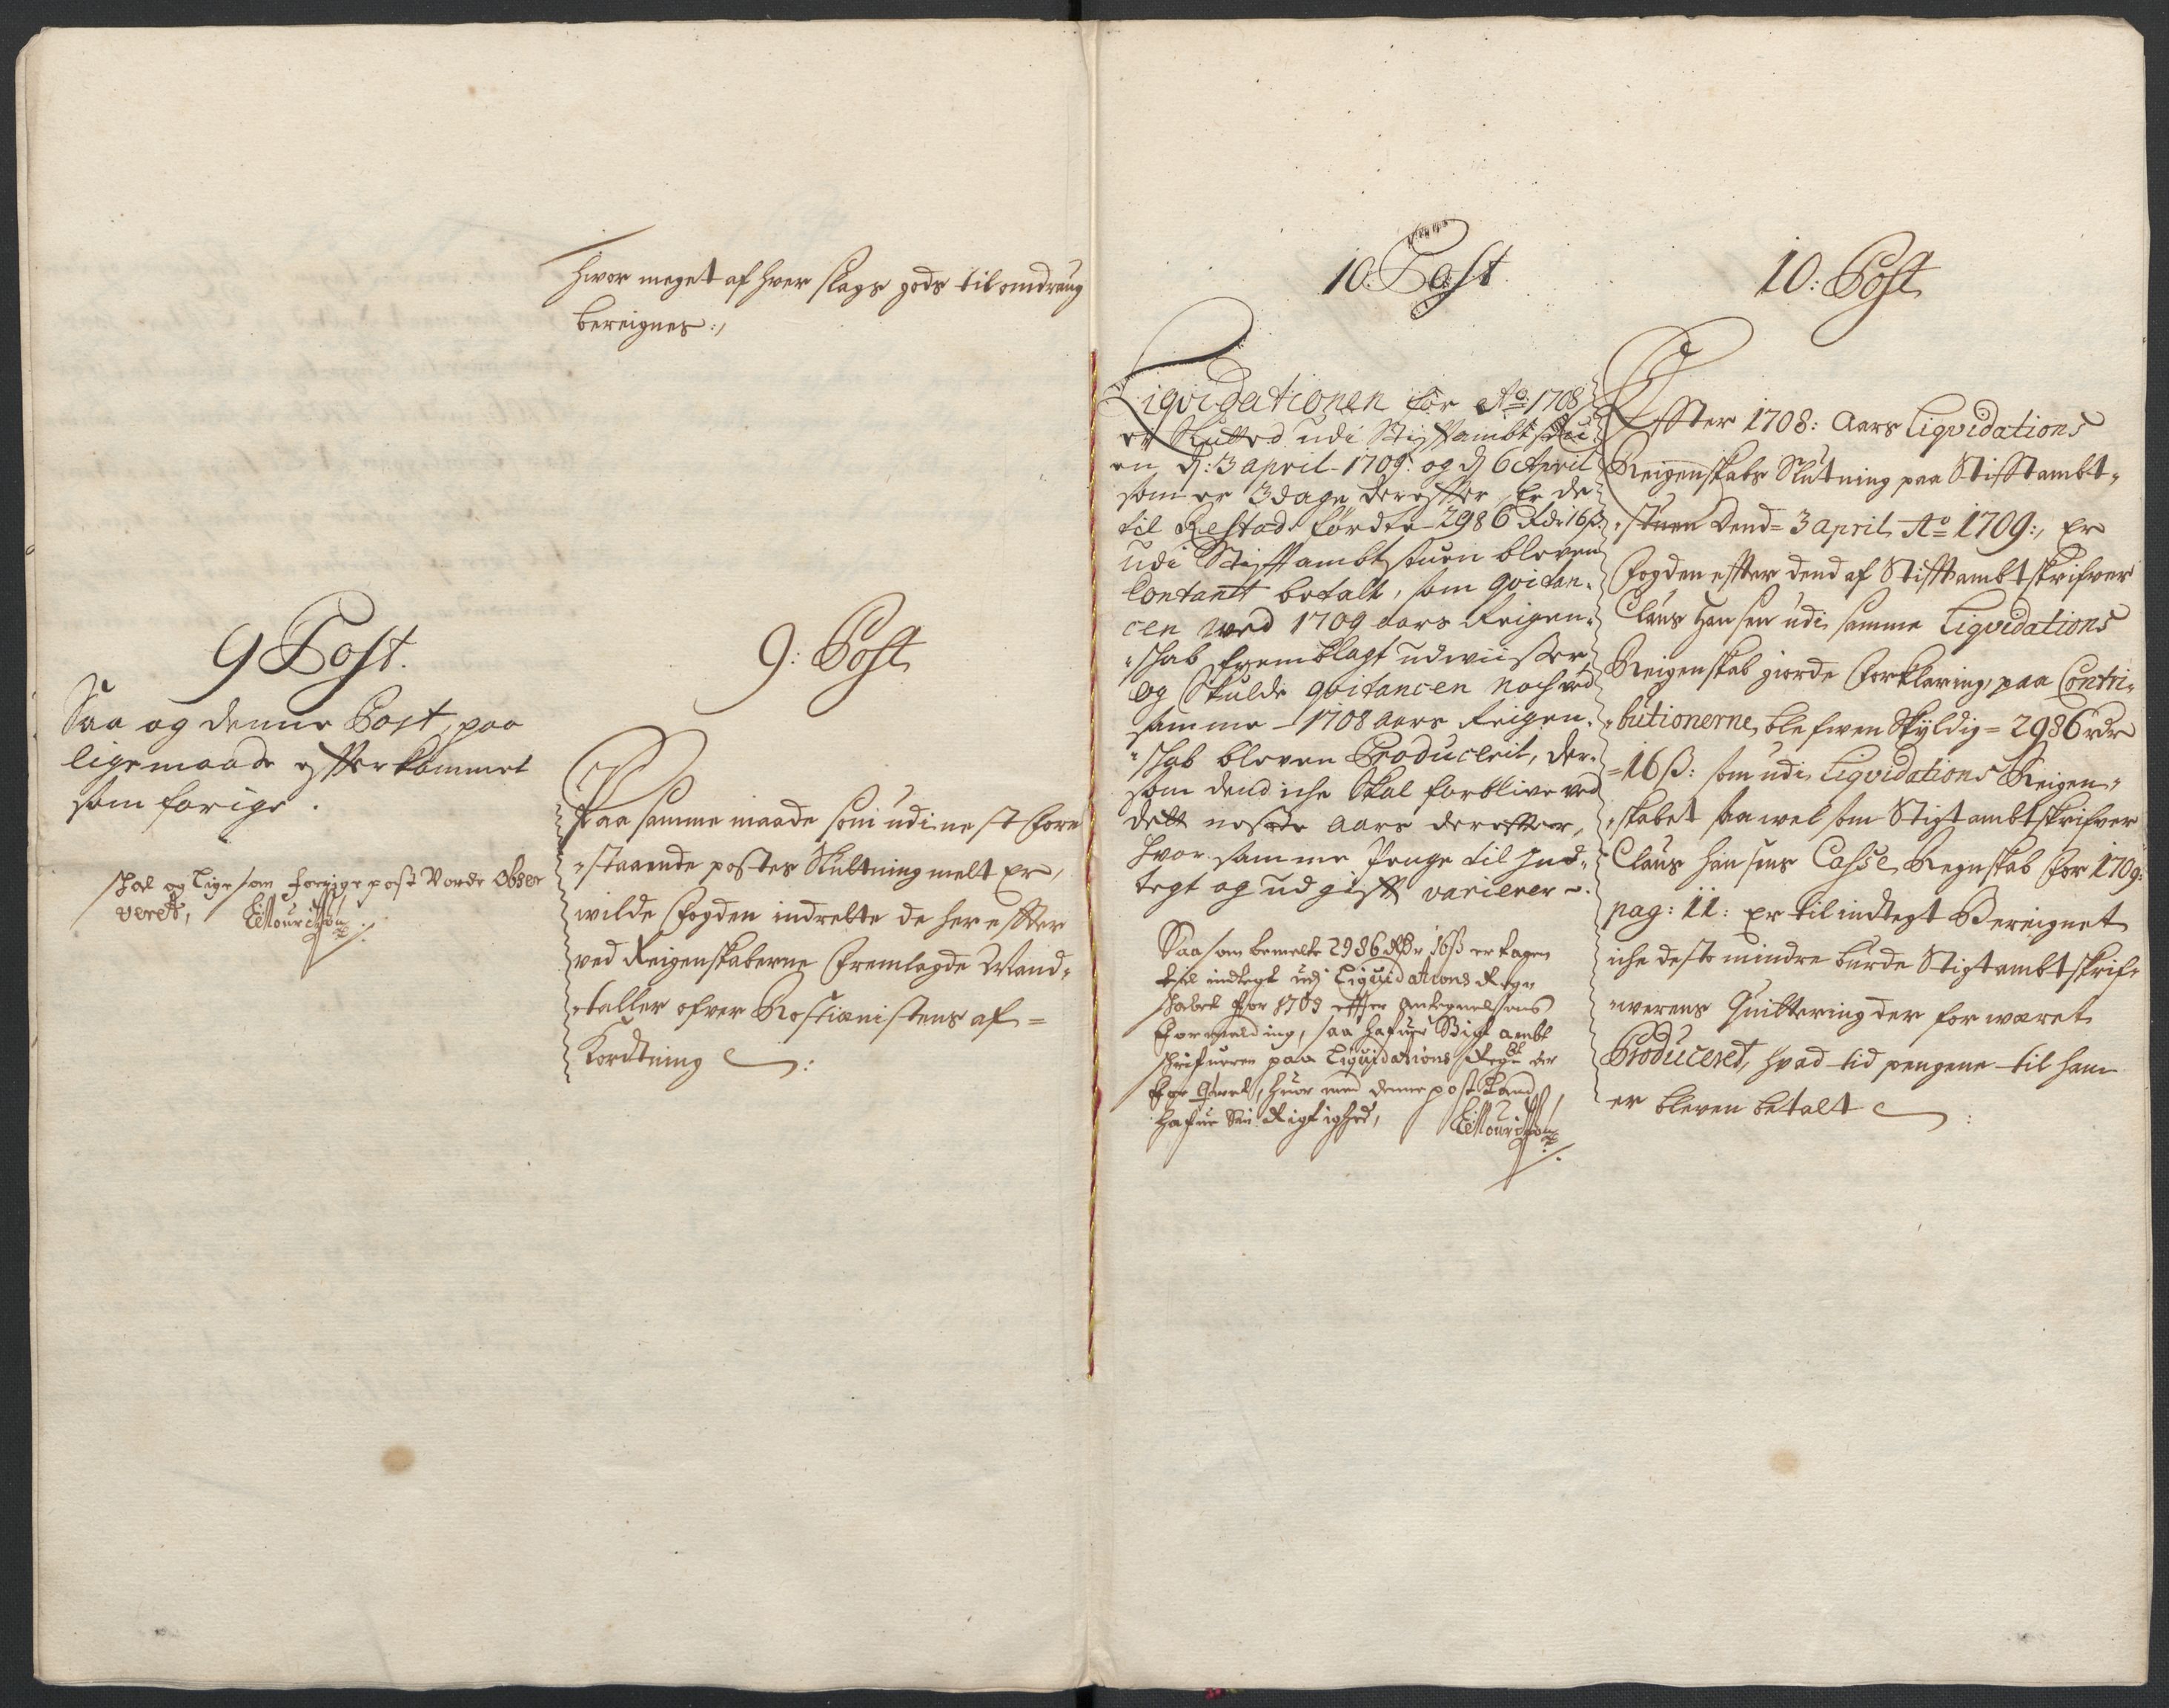 hvor meget af hver slags gods til omdraug
bereignes:,
9 Post.
Saa og denne Post, paa
ligemaade efterkommet
som forige.
schal og lige som forrige post vorde obser
veret,
9: Post
Paa samme maade som udi nest fore
staaende postes Slutning melt er,
wilde Fogden indrette de her effter
ved Reigenskaberne fremlagde Mand-
taller ofver Rostienistens af=
kordtning
10. Post
Liqvidationen for Ao 1708
er Slutted udi Stiftambtstu
en, d: 3 april 1709: og d 6 April
som er 3 dage dereffter, Er de
til Restad. førdte 2986 Rdr 16 ß.
udi Stiftambtstuen bleven
Contant betalt, som qvitan-
cen ved 1709 aars Reigen-
schab fremblagt udwiisser,
og Skulde qvitancen noch ved
samme 1708 aars Reigen-
schab bleven Producerit, der-
som dend iche Skal forblive ved
dett neste aars dereffter,
hvor samme Penge til Ind-
tegt og udgifft varierer.
Saa som bemelte 2986 Rdr 16 ß er tagen
til indtegt udj Liquidations Regn
schabet for 1708 effter antegnelsens
formelding, saa hafuer Stigt ambt
schrifueren paa Liquidations Regn der
for qvitert, huor med denne post kand
hafue sin Rigtighed,
10: Post
Effter 1708: Aars Liqvidations
Reigenskabs Slutning paa Stifftambt-
stuen dend= 3 april Ao 1709:, Er
Fogden effter dend af Stifftambtskrifver
Claus Hansen udi samme Liqvidations
Reigenskab giorde Forklaring, paa Contri-
butionerne, blefwen Skyldig= 2986 rdr
=16 ß: som udi Liqvidations Reigen-
skabet saa wel som Stigtambtskrifver
Claus Hansens Casse Regnskab for 1709:
pag: 11: er til indtegt Bereignet
iche desto mindre burde Stigtambtskrif-
werens Quittering der for wæret
Produceret, hvad tid pengene til ham
er bleven betalt